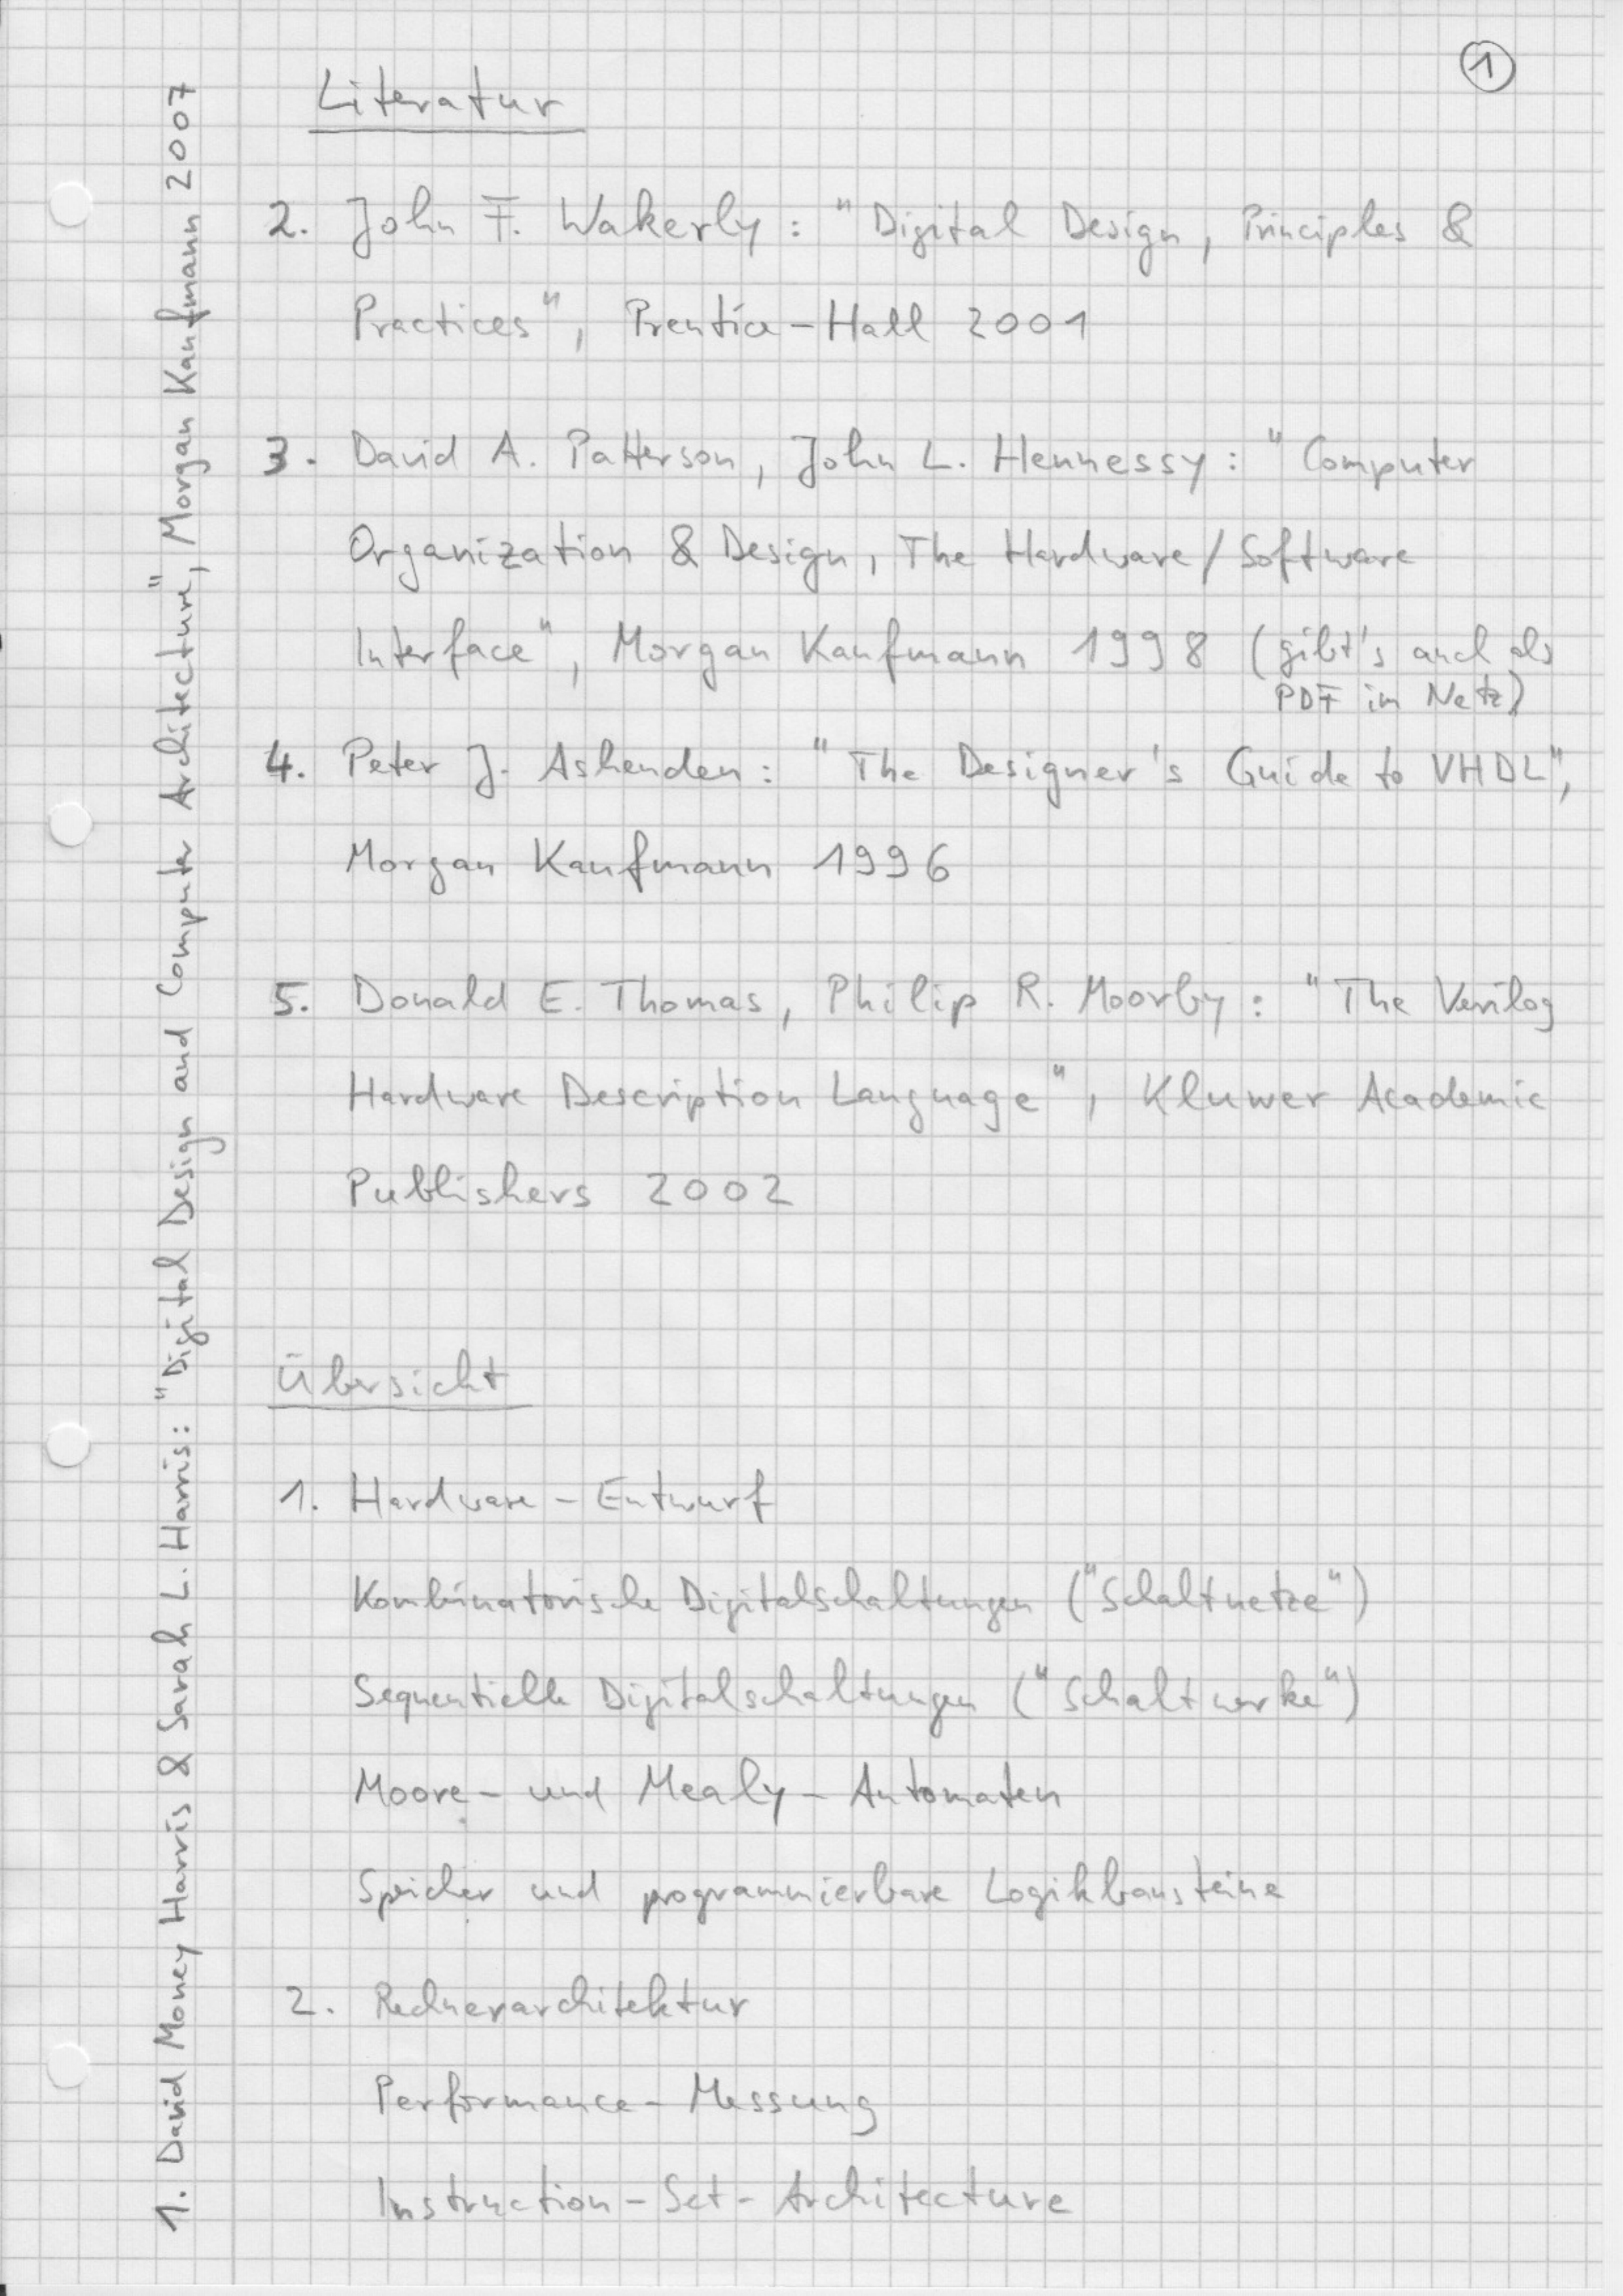 1
Literatur
1. David Money Harris & Sarah L. Harris: "Digital Design and Computer Architecture", Morgan Kaufmann 2007
2. John F. Wakerly: "Digital Design, Principles &
Practices", Prentice-Hall 2001
3. David A. Patterson, John L. Hennessy: "Computer
Organization & Design, The Hardware/Software
Interface", Morgan Kaufmann 1998 (gibt's auch als
PDF im Netz)
4. Peter J. Ashenden: "The Designer's Guide to VHDL",
Morgan Kaufmann 1996
5. Donald E. Thomas, Philip R. Moorby: "The Verilog
Hardware Description Language", Kluwer Academic
Publishers 2002
Übersicht
1. Hardware-Entwurf
Kombinatorische Digitalschaltungen ("Schaltnetze")
Sequentielle Digitalschaltungen ("Schaltwerke")
Moore- und Mealy-Automaten
Speicher und programmierbare Logikbausteine
2. Rechnerarchitektur
Performance-Messung
Instruction-Set-Architecture